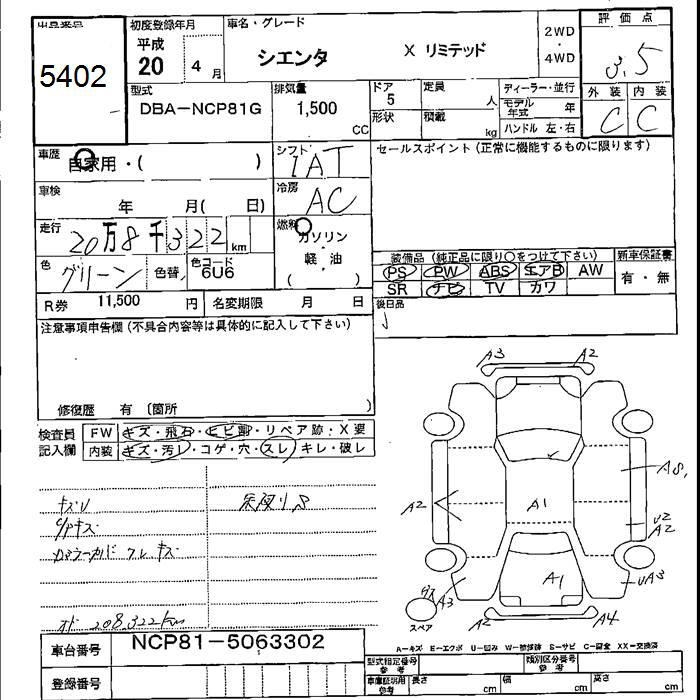 出品番号
5402
初度登録年月
平成
20 4 月
車名・グレード
シエンタ X リミテッド
2WD
・
4WD
評価点
3.5
外装 内装
C C
型式
DBA-NCP81G
排気量
1,500
CC
ドア
5
形状
定員
人
積載
kg
ディーラー・並行
モデル
年式 年
ハンドル 左・右
車歴
自家用・( )
シフト
IAT
車検
年 月( 日)
冷房
AC
走行
20万8千322 km
燃料
ガソリン
・
軽・油
( )
色
グリーン
色替
色コード
6U6
R券 11,500 円
名変期限 月 日
セールスポイント(正常に機能するものに限ります)
装備品 (純正品に限り〇をつけて下さい)
PS PW ABS エアB AW
SR ナビ TV カワ
新車保証書
有・無
後日品
注意事項申告欄(不具合内容等は具体的に記入して下さい)
修復歴 有 〔箇所 〕
検査員
記入欄
FW キズ・飛石・ヒビ割・リペア跡・X要
内装 キズ・汚レ・コゲ・穴・スレ・キレ・破レ
A3 A2
A2
A1
A8,
U2
A2
A1
UA3
A3
スペア
A2
A4
208,322km
A-キズ E-エクボ U-凹み W-補修跡 S-サビ C-腐食 XX-交換済
車台番号 NCP81-5063302
登録番号
型式指定番号
参考
類別区分番号
参考
車庫証明用
参考
長さ cm
幅 cm
高さ cm